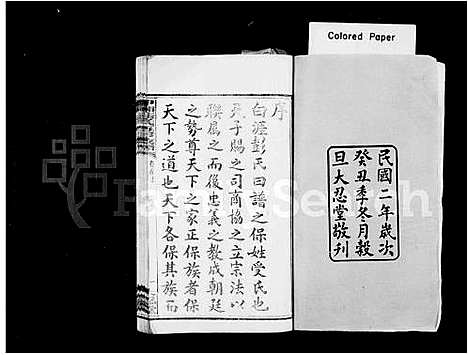 Colored Paper
民國二年歲次
癸丑季冬月穀
旦大忍堂敬刊
序
白湹彭氏曰譜之保姓受氏也
天子賜之司商協之立宗法以
聯屬之而後忠義之教成朝廷
之勢尊天下之家正保族者保
天下之道也天下各保其族而